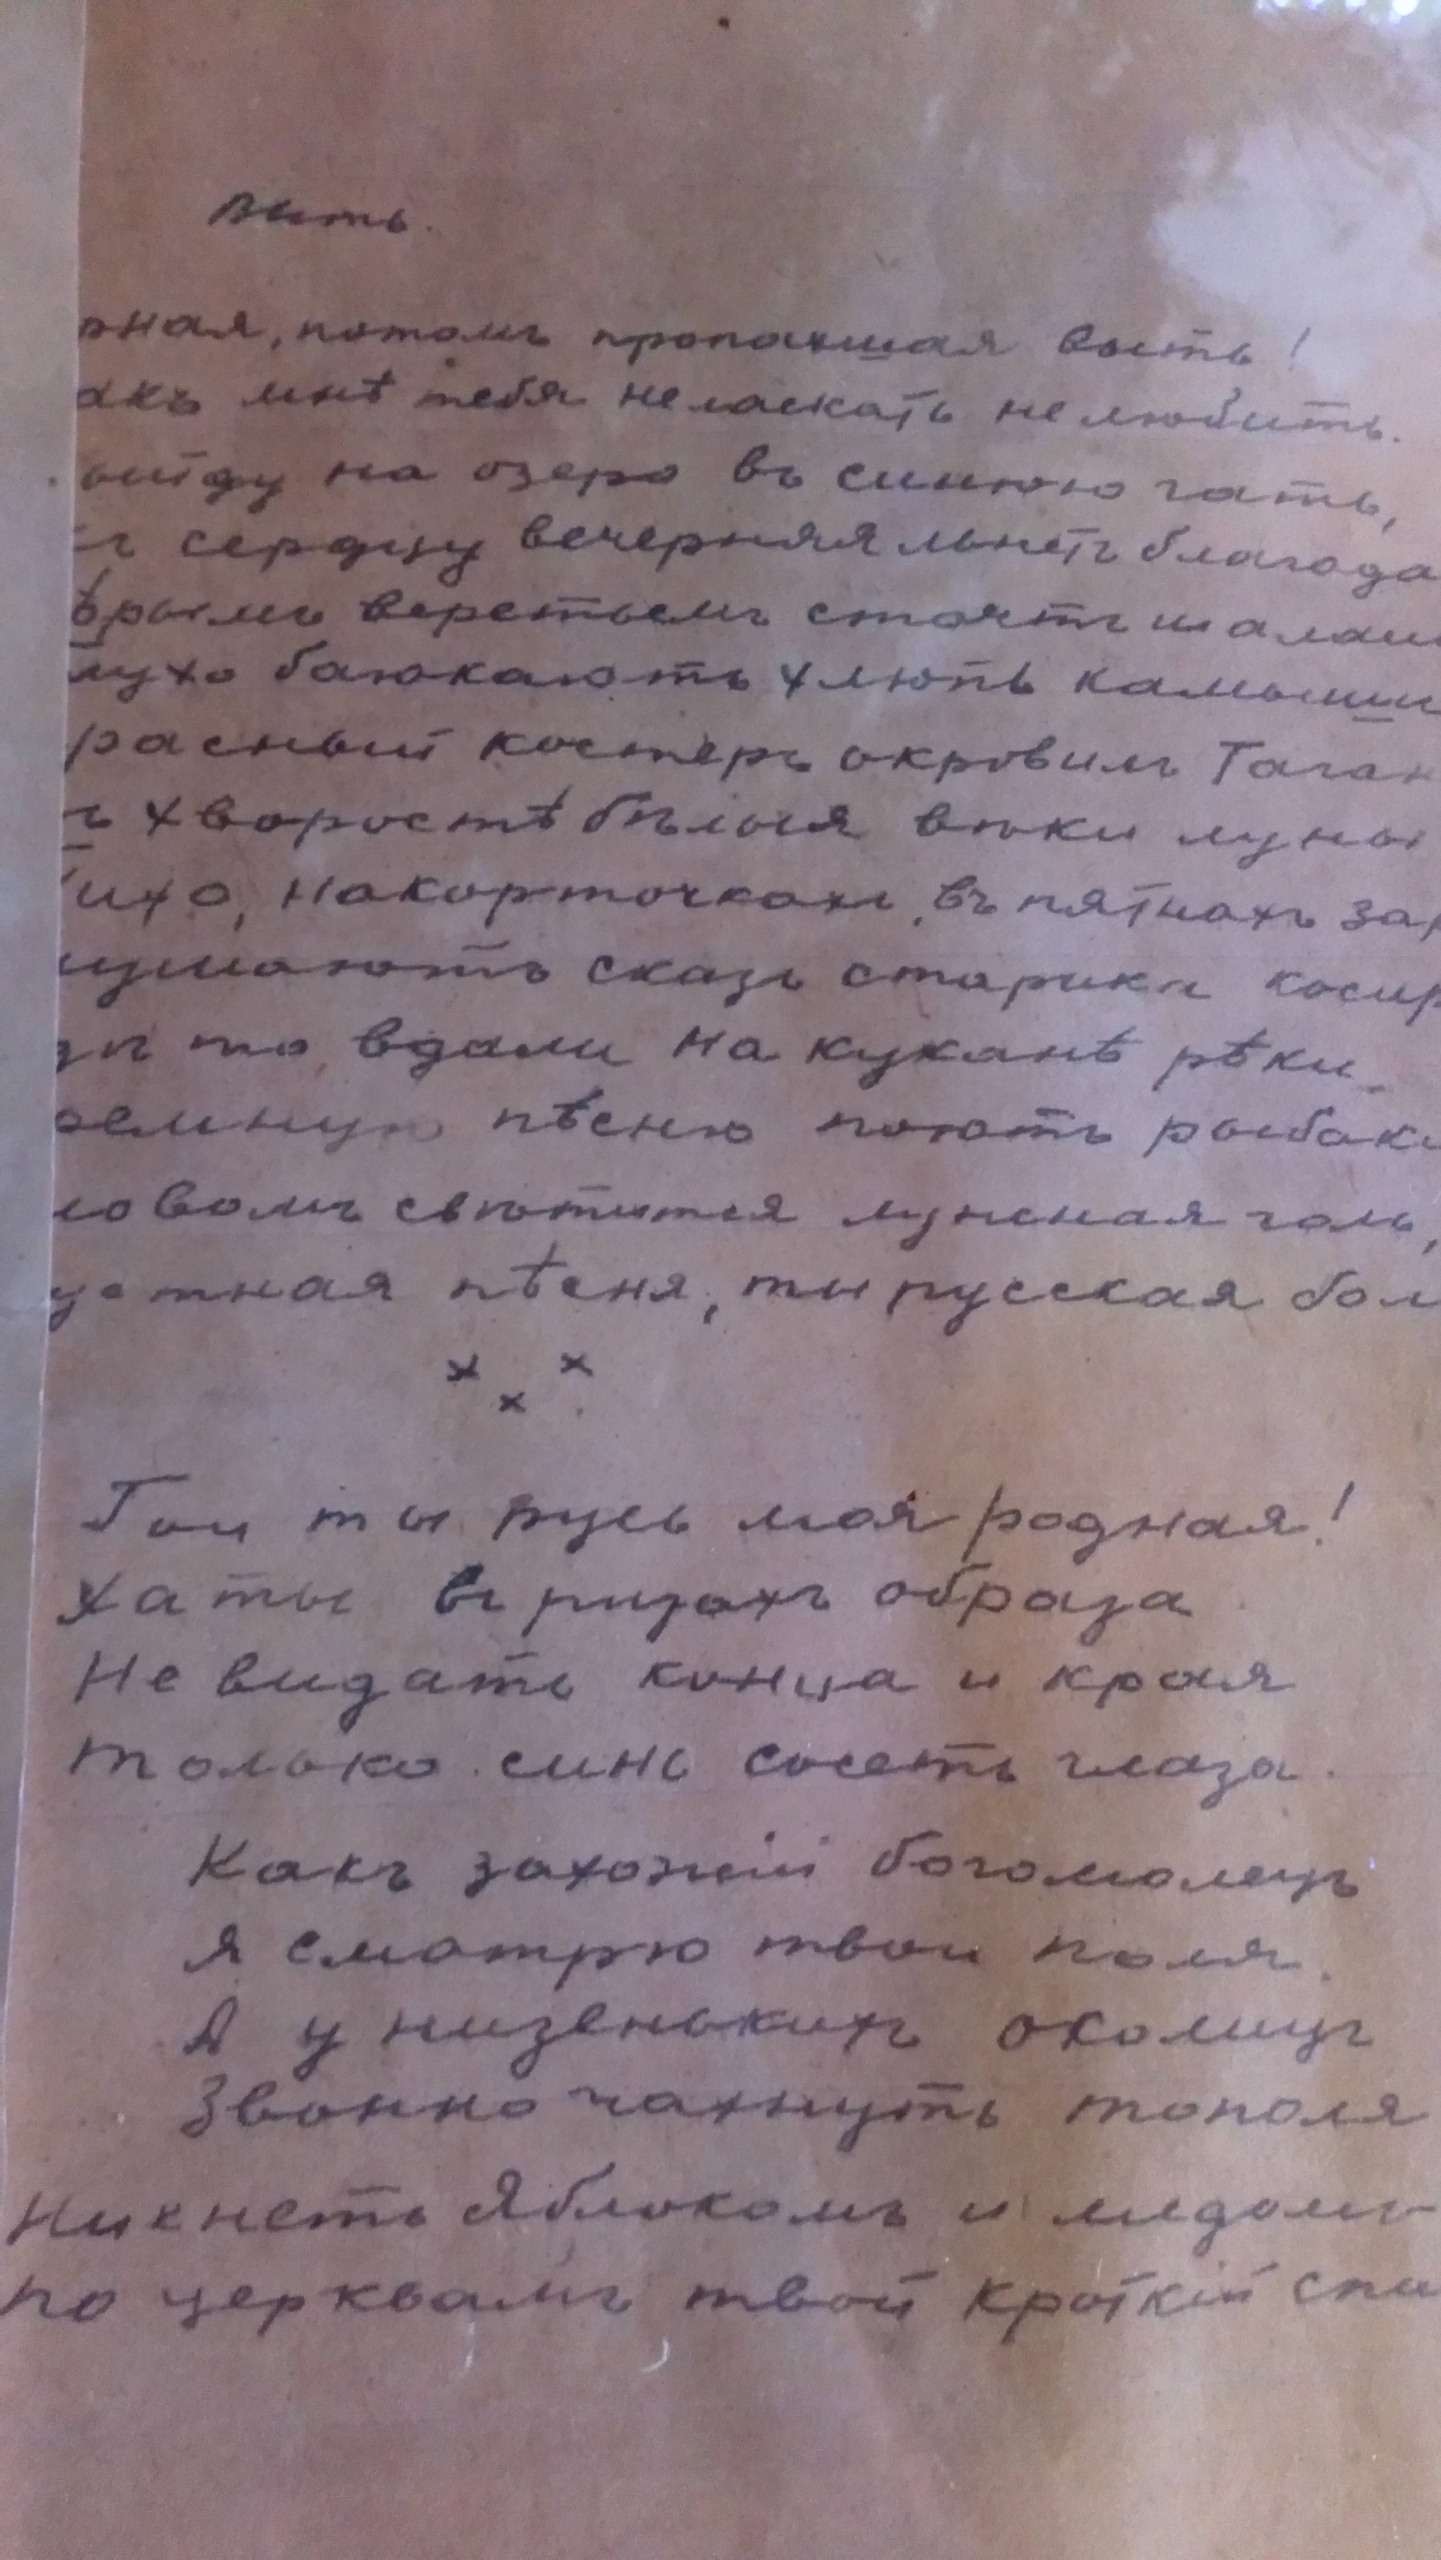 Выть.
рная, потомъ пропахшая выть!
акъ мнѣ тебя не ласкать не любить.
ыйду на озеро въ синюю гать,
ъ сердцу вечерняя льнетъ благода
ѣрымъ веретьемъ стоятъ шалаш
лухо баюкаютъ хлюпь камыши
расный костеръ окровилъ Таган
ъ хворостѣ бѣлыя вѣки луны
ихо, на корточкахъ, въ пятнахъ зар
лушаютъ сказъ старика косар
дѣ то вдали на куканѣ рѣки
ремную пѣсню поютъ рыбаки
ловомъ свѣтится лужная голь,
устная пѣсня, ты русская бол
× × ×
Гои ты русь моя родная!
Хаты въ ризахъ образа
Не видать конца и края
Только синь сосетъ глаза.
Какъ захожій богомолецъ
Я смотрю твои поля.
А у низенькихъ околицъ
Звонно чахнутъ тополя
Пихнетъ яблокомъ и мѣдомъ
По церквамъ твой кроткій спа